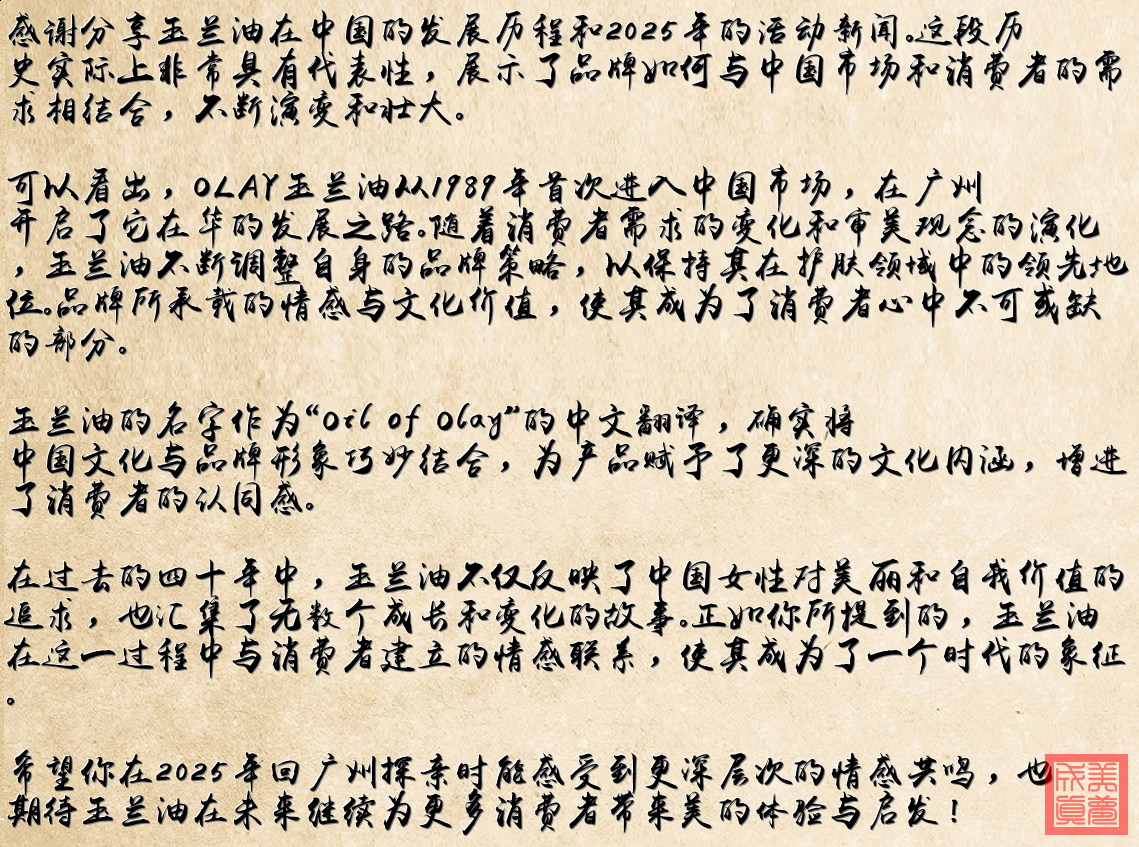 感谢分享玉兰油在中国的发展历程和2025年的活动新闻。这段历
史实际上非常具有代表性，展示了品牌如何与中国市场和消费者的需
求相结合，不断演变和壮大。
可以看出，OLAY玉兰油从1989年首次进入中国市场，在广州
开启了它在华的发展之路。随着消费者需求的变化和审美观念的演化
，玉兰油不断调整自身的品牌策略，以保持其在护肤领域中的领先地
位。品牌所承载的情感与文化价值，使其成为了消费者心中不可或缺
的部分。
玉兰油的名字作为“Oil of Olay”的中文翻译，确实将
中国文化与品牌形象巧妙结合，为产品赋予了更深的文化内涵，增进
了消费者的认同感。
在过去的四十年中，玉兰油不仅反映了中国女性对美丽和自我价值的
追求，也汇集了无数个成长和变化的故事。正如你所提到的，玉兰油
在这一过程中与消费者建立的情感联系，使其成为了一个时代的象征
。
希望你在2025年回广州探亲时能感受到更深层次的情感共鸣，也
期待玉兰油在未来继续为更多消费者带来美的体验与启发！
美梦成真